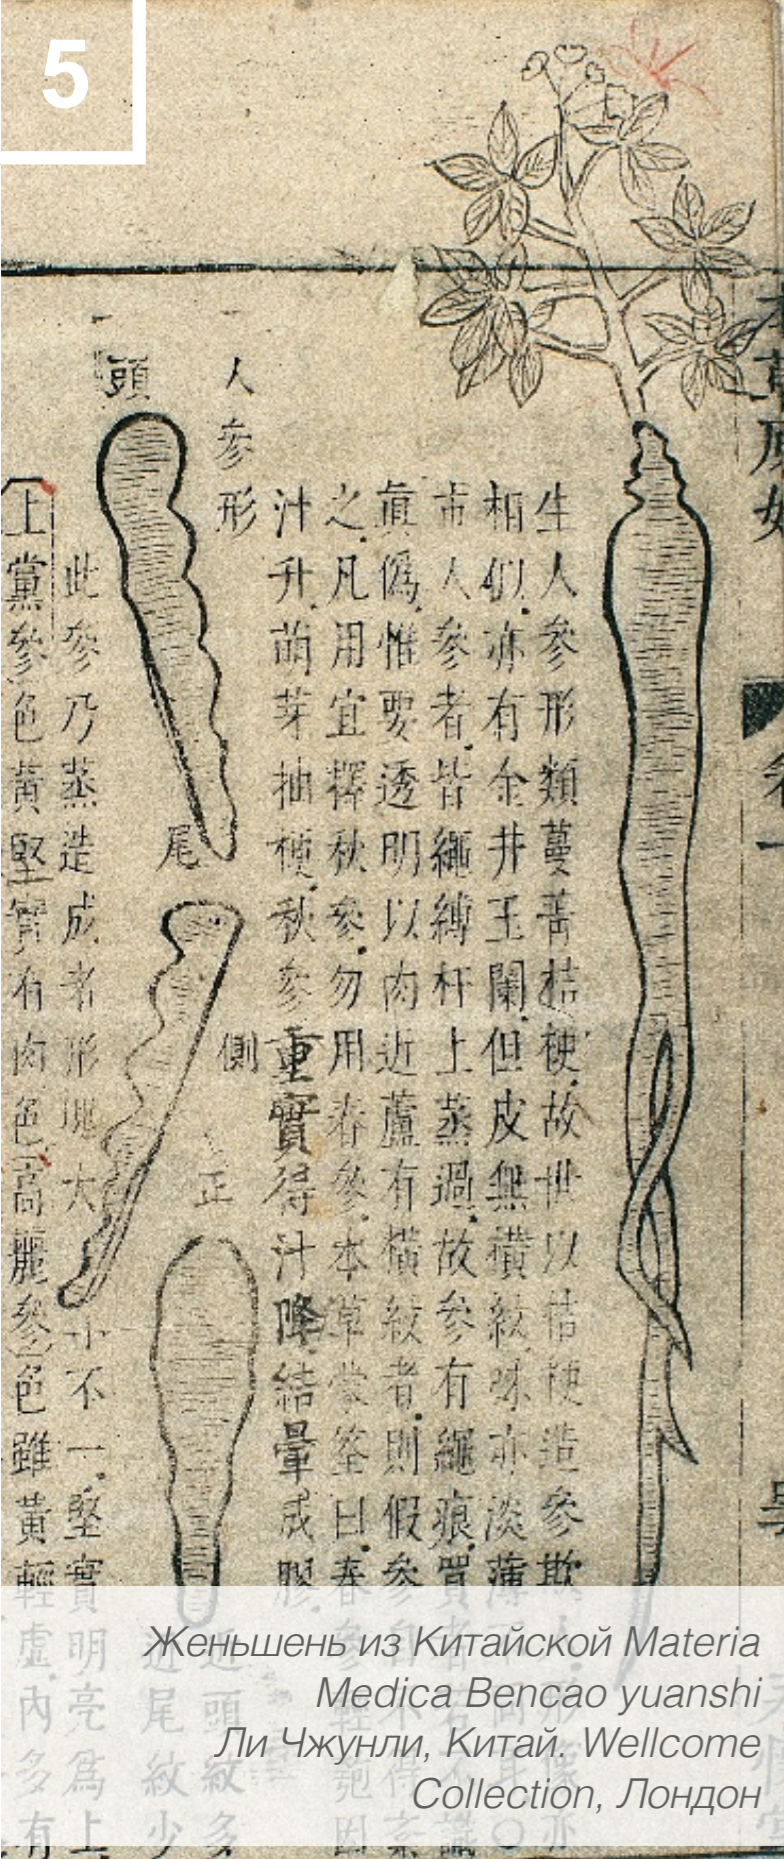 5
生人參形類蔓菁桔梗故世以桔梗造參欺
相似亦有金井玉闌但皮無橫紋味亦淡薄
市人參者皆繩縛杆上蒸過故參有繩痕買
眞僞惟要透明以肉近蘆有橫紋者則假參
之凡用宜擇秋參勿用春參本草蒙筌曰春
汁升萌芽抽梗秋參重實得汁降結暈成膠
人參形
頭
尾
側
正
近頭紋多
近尾紋少
此參乃蒸造成者形塊大小不一堅實明亮爲上
上黨參色黃堅實有肉色高麗參色雖黃輕虛內多有
Женьшень из Китайской Materia
Medica Bencao yuanshi
Ли Чжунли, Китай. Wellcome
Collection, Лондон